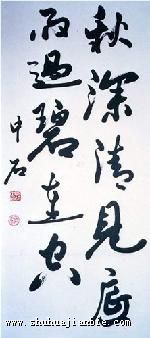 秋深清見底
雨過碧連空
申石
www.shuhuajianbie.com